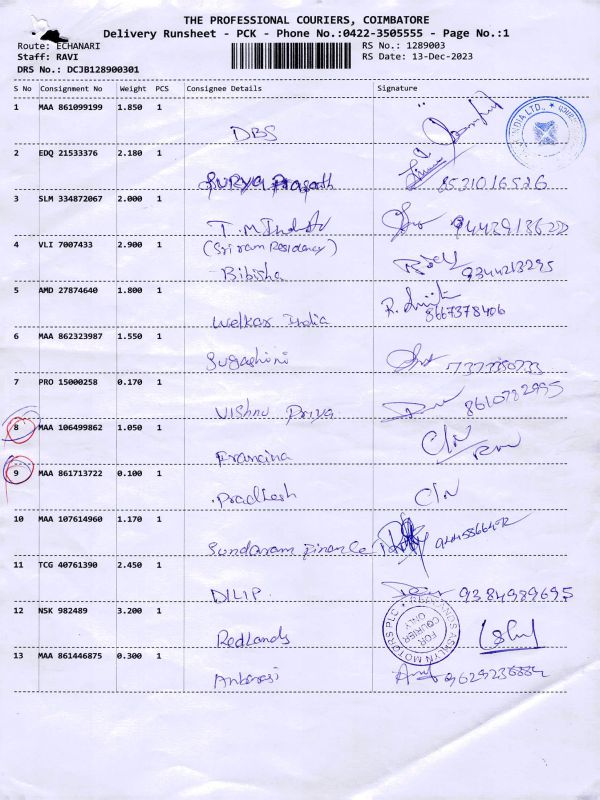 THE PROFESSIONAL COURIERS, COIMBATORE
Delivery Runsheet - PCK - Phone No.:0422-3505555 - Page No.:1
Route: ECHANARI RS No.: 1289003
Staff: RAVI RS Date: 13-Dec-2023
DRS No.: DCJB128900301
S No Consignment No Weight PCS Consignee Details Signature
1 MAA 861099199 1.850 1
DBS
2 EDQ 21533376 2.180 1
Surya Prasath 8531016526
3 SLM 334872067 2.000 1
T.M
4 VLI 7007433 2.900 1 (Sri ram Residency)
Bibisha 9344213295
5 AMD 27874640 1.800 1
Welkar India 8667378406
6 MAA 862323987 1.550 1
Sugashini
7 PRO 15000258 0.170 1
Vishnu Priya
8 MAA 106499862 1.050 1
Francina
9 MAA 861713722 0.100 1
Pradhesh
10 MAA 107614960 1.170 1
Sundaram Finance
11 TCG 40761390 2.450 1
DILIP 9384989695
12 NSK 982489 3.200 1
Redlands
REDLANDS ASHLYN MOTORS PLC
FOR COURIER ONLY
13 MAA 861446875 0.300 1
Anbarasi